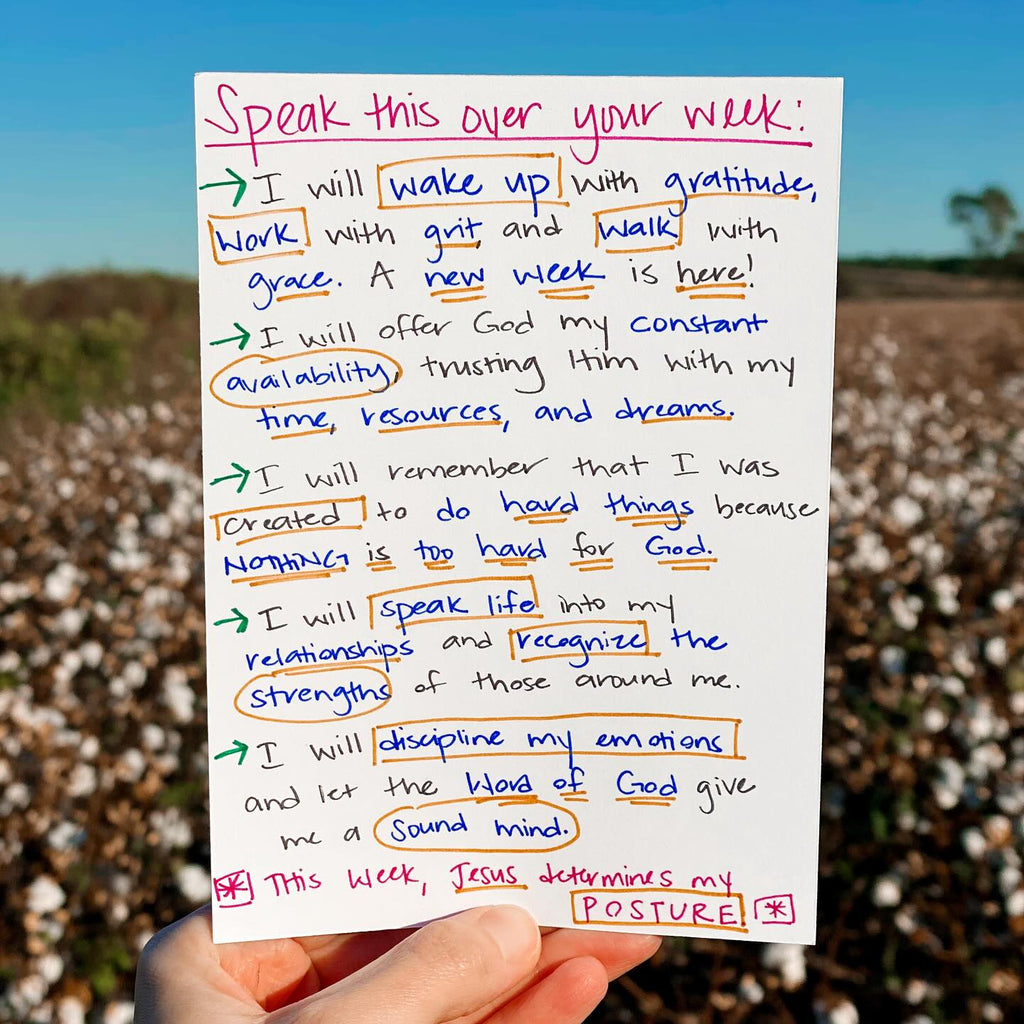 Speak this over your week:
→ I will wake up with gratitude,
work with grit and walk with
grace. A new week is here!
→ I will offer God my constant
availability, trusting Him with my
time, resources, and dreams.
→ I will remember that I was
created to do hard things because
NOTHING is too hard for God.
→ I will speak life into my
relationships and recognize the
strengths of those around me.
→ I will discipline my emotions
and let the Word of God give
me a sound mind.
* This week, Jesus determines my
POSTURE *